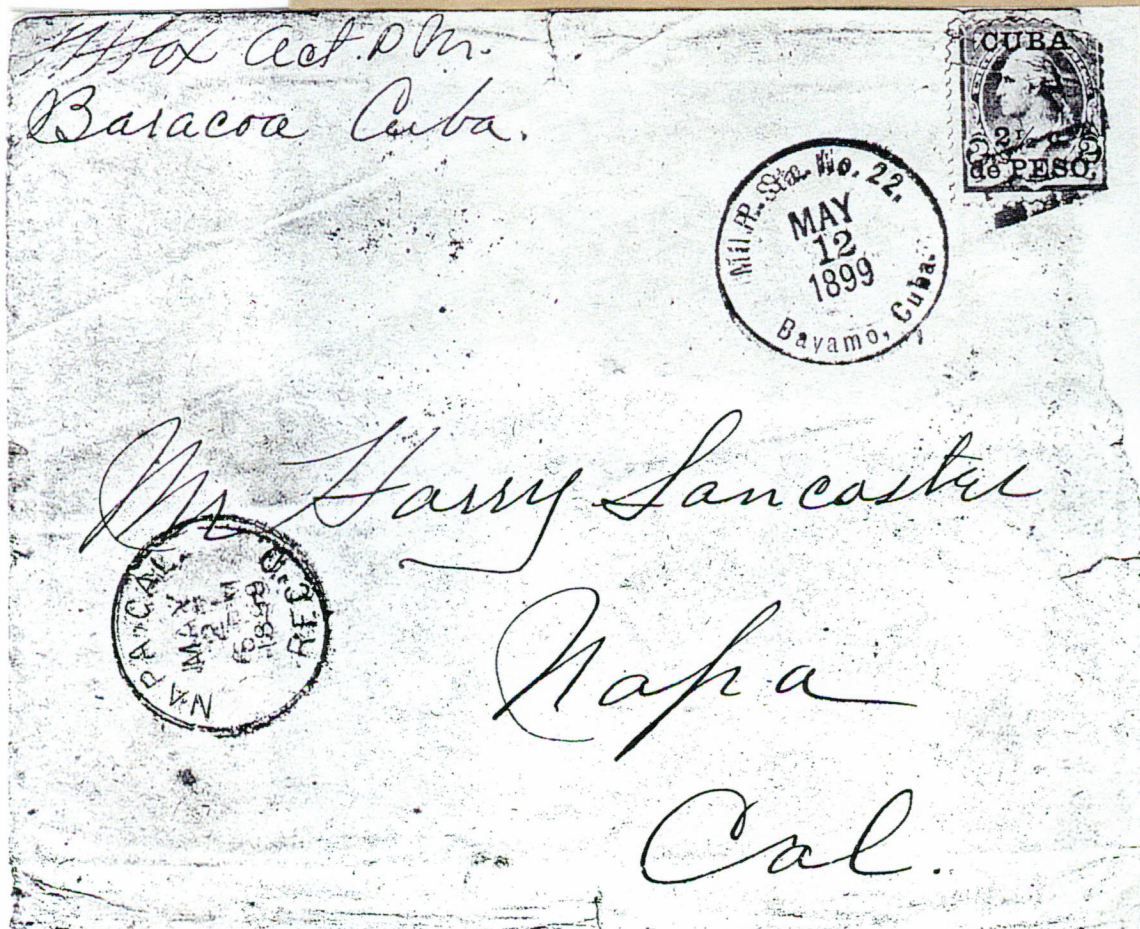 Fox Act. P.M.
Baracoa Cuba.
CUBA
2½ c.
de PESO.
Mil. P. Sta. No. 22.
MAY
12
1899
Bayamo, Cuba.
Mr Harry Lancaster
Napa
Cal.
NAPA, CAL.
MAY
1899
REC'D.